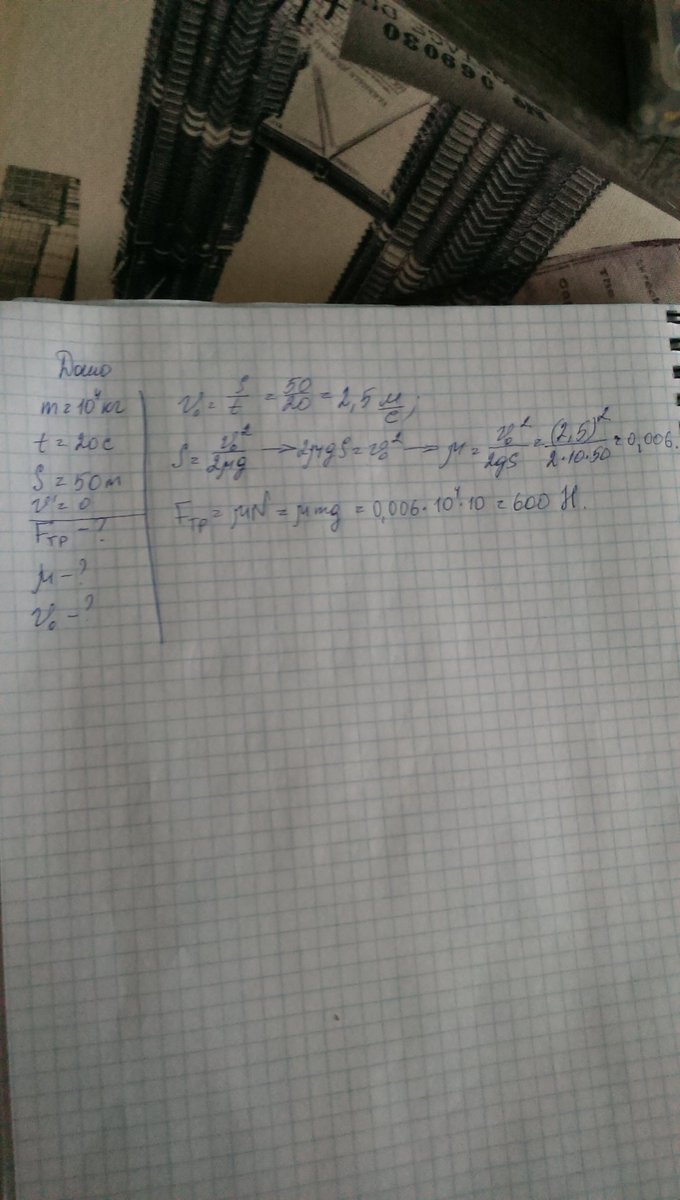 № 069030
Дано
m = 10⁴ кг
t = 20 c
S = 50 m
v = 0
Fтр - ?
μ - ?
v₀ - ?
v₀ = S/t = 50/20 = 2,5 м/с;
S = v₀²/2μg → 2μgS = v₀² → μ = v₀²/2gS = (2,5)²/2·10·50 = 0,006.
Fтр = μN = μmg = 0,006·10⁴·10 = 600 Н.